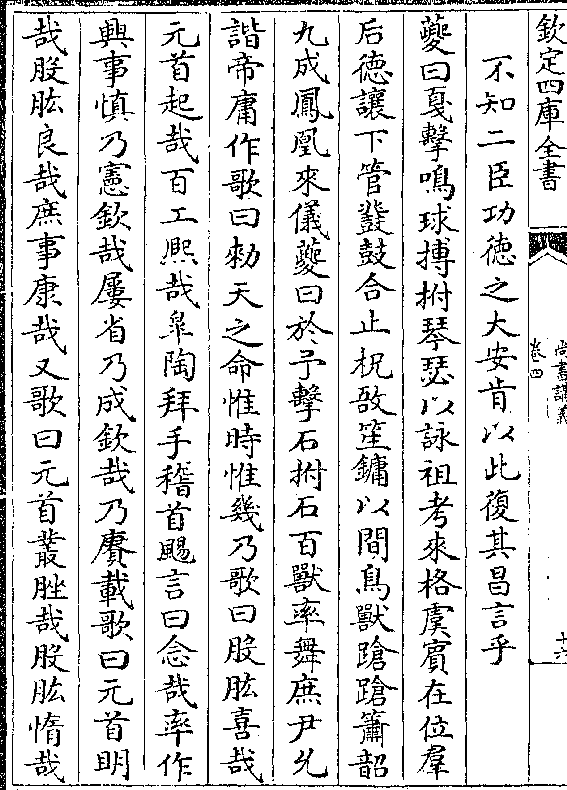 欽定四庫全書
尚書講義
卷四
十六
不知二臣功徳之大安肯以此復其昌言乎
夔曰戛擊鳴球搏拊琴瑟以詠祖考來格虞賓在位羣
后徳讓下管鼗鼓合止柷敔笙鏞以間鳥獸蹌蹌簫韶
九成鳳凰來儀夔曰於予擊石拊石百獸率舞庶尹允
諧帝庸作歌曰勑天之命惟時惟幾乃歌曰股肱喜哉
元首起哉百工熈哉臯陶拜手稽首颺言曰念哉率作
興事慎乃憲欽哉屢省乃成欽哉乃賡載歌曰元首明
哉股肱良哉庶事康哉又歌曰元首叢脞哉股肱惰哉